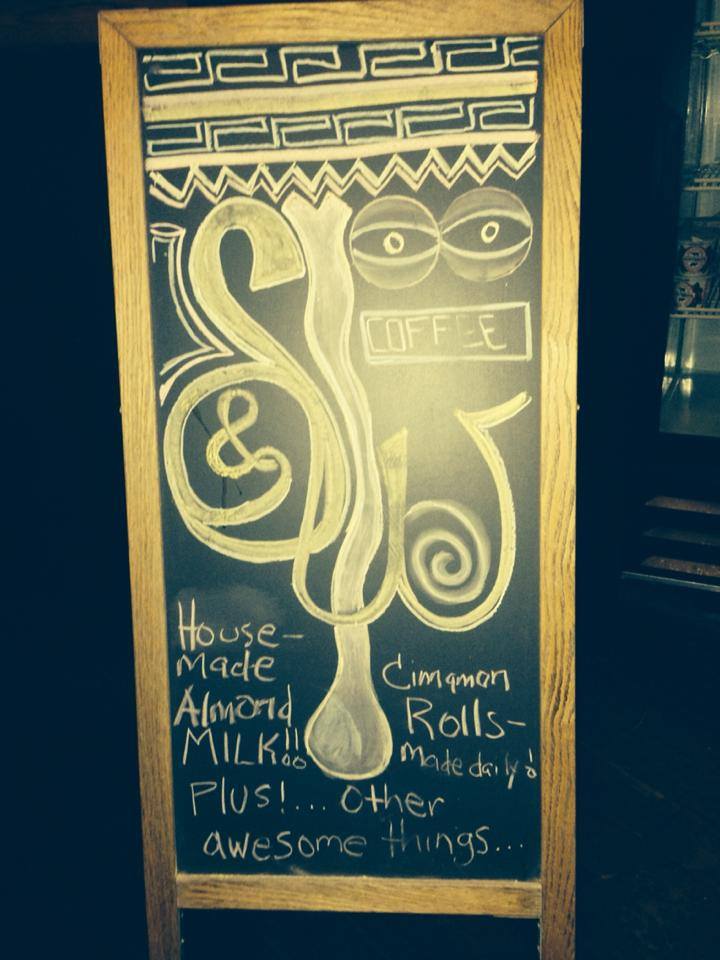 COFFEE
&
House-
made
Almond
MILK!!
Cinamon
Rolls-
made daily!
Plus!... other
awesome things...